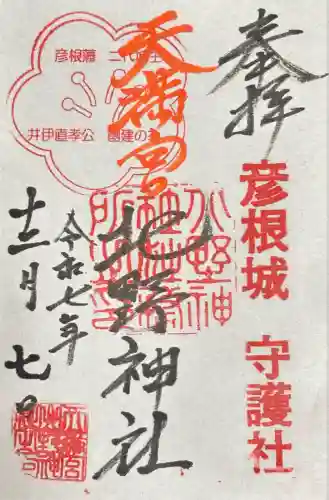 奉拝
彦根城 守護社
天満宮
北野神社
彦根藩 二代藩主
井伊直孝公
令和七年
十二月七日